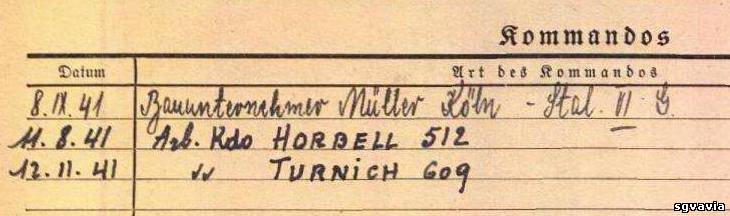 Kommandos
Datum Art des Kommandos
8.IX.41 Bauunternehmer Müller Köln - Stal. VI G.
11.8.41 Arb. Kdo HORBELL 512
12.11.41 " TURNICH 609
sgvavia